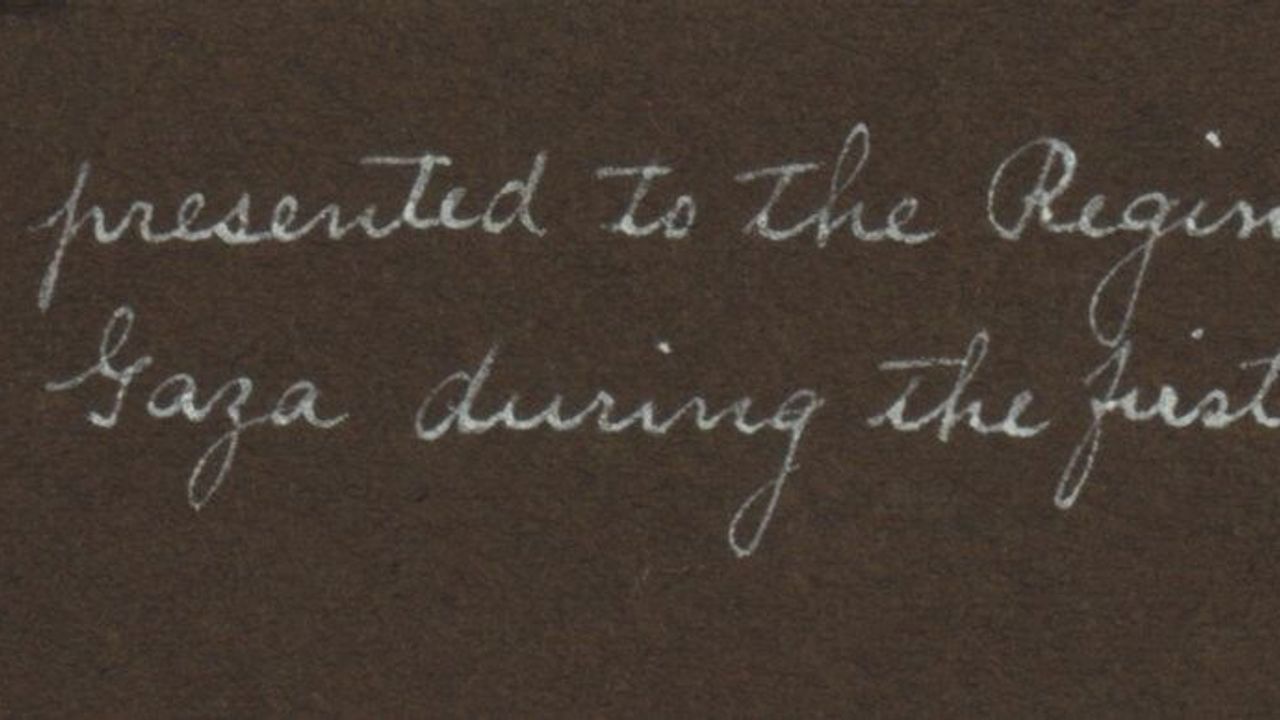 presented to the Regim
Gaza during the first